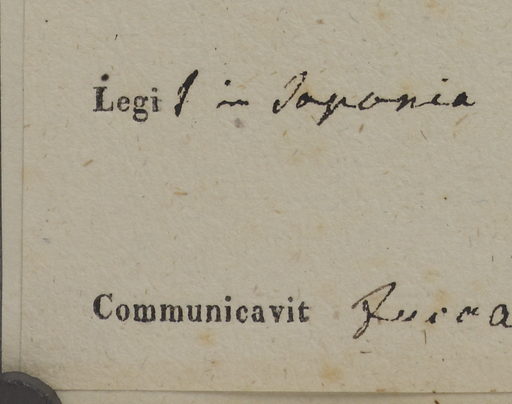 Legit in Japonia
Communicavit Zucca